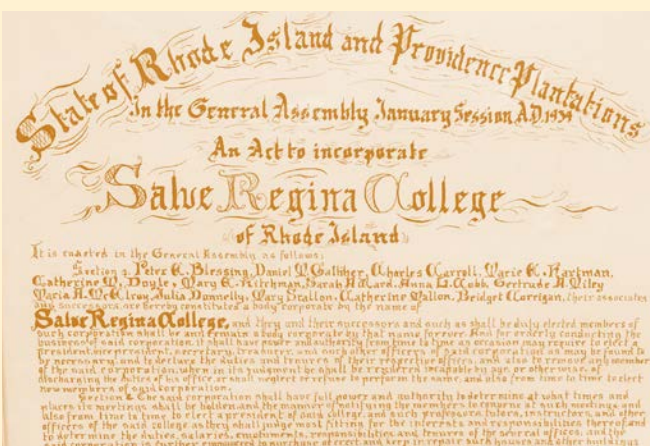 State of Rhode Island and Providence Plantations
In the General Assembly January Session A.D. 1934
An Act to incorporate
Salve Regina College
of Rhode Island
It is enacted in the General Assembly as follows:
Section 1. Peter E. Blessing, Daniel M. Galliher, Charles Carroll, Marie E. Hartman,
Catherine M. Doyle, Mary E. Hitchman, Sarah A. Ward, Anna L. Cobb, Gertrude A. Wiley
Maria A. McElroy, Julia Donnelly, Mary Scallon, Catherine Mallon, Bridget Corrigan, their associates
and successors, are hereby constituted a body corporate by the name of
Salve Regina College, and they and their successors and such as shall be duly elected members of
such corporation shall be and remain a body corporate by that name forever. And for orderly conducting the
business of said corporation, it shall have power and authority from time to time as occasion may require to elect a
president, vice president, secretary, treasurer, and such other officers of said corporation as may be found to
be necessary, and to declare the duties and tenures of their respective offices, and also to remove any member
of the said corporation, when in its judgment he shall be rendered incapable by age or otherwise, of
discharging the duties of his office, or shall neglect or refuse to perform the same, and also from time to time to elect
new members of said corporation.
Section 2. The said corporation shall have full power and authority to determine at what times and
places its meetings shall be holden and the manner of notifying the members to convene at such meetings, and
also from time to time, to elect a president of said college, and such professors, tutors, instructors, and other
officers of the said college as they shall judge most fitting for the interests and responsibilities thereof, and
to determine the duties, salaries, emoluments, responsibilities and tenures of the several offices, and the
said corporation is further empowered to purchase or erect, and keep in repair such houses and other buildings